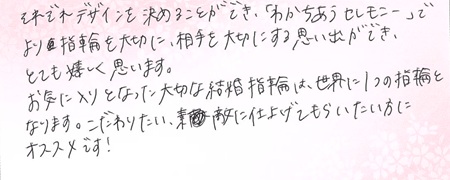 それぞれデザインを決めることができ、「わかちあうセレモニー」で
より指輪を大切に、相手を大切にする思い出ができ、
とても嬉しく思います。
お気に入りとなった大切な結婚指輪は、世界に1つの指輪と
なります。こだわりたい、素敵に仕上げてもらいたい方に
オススメです!